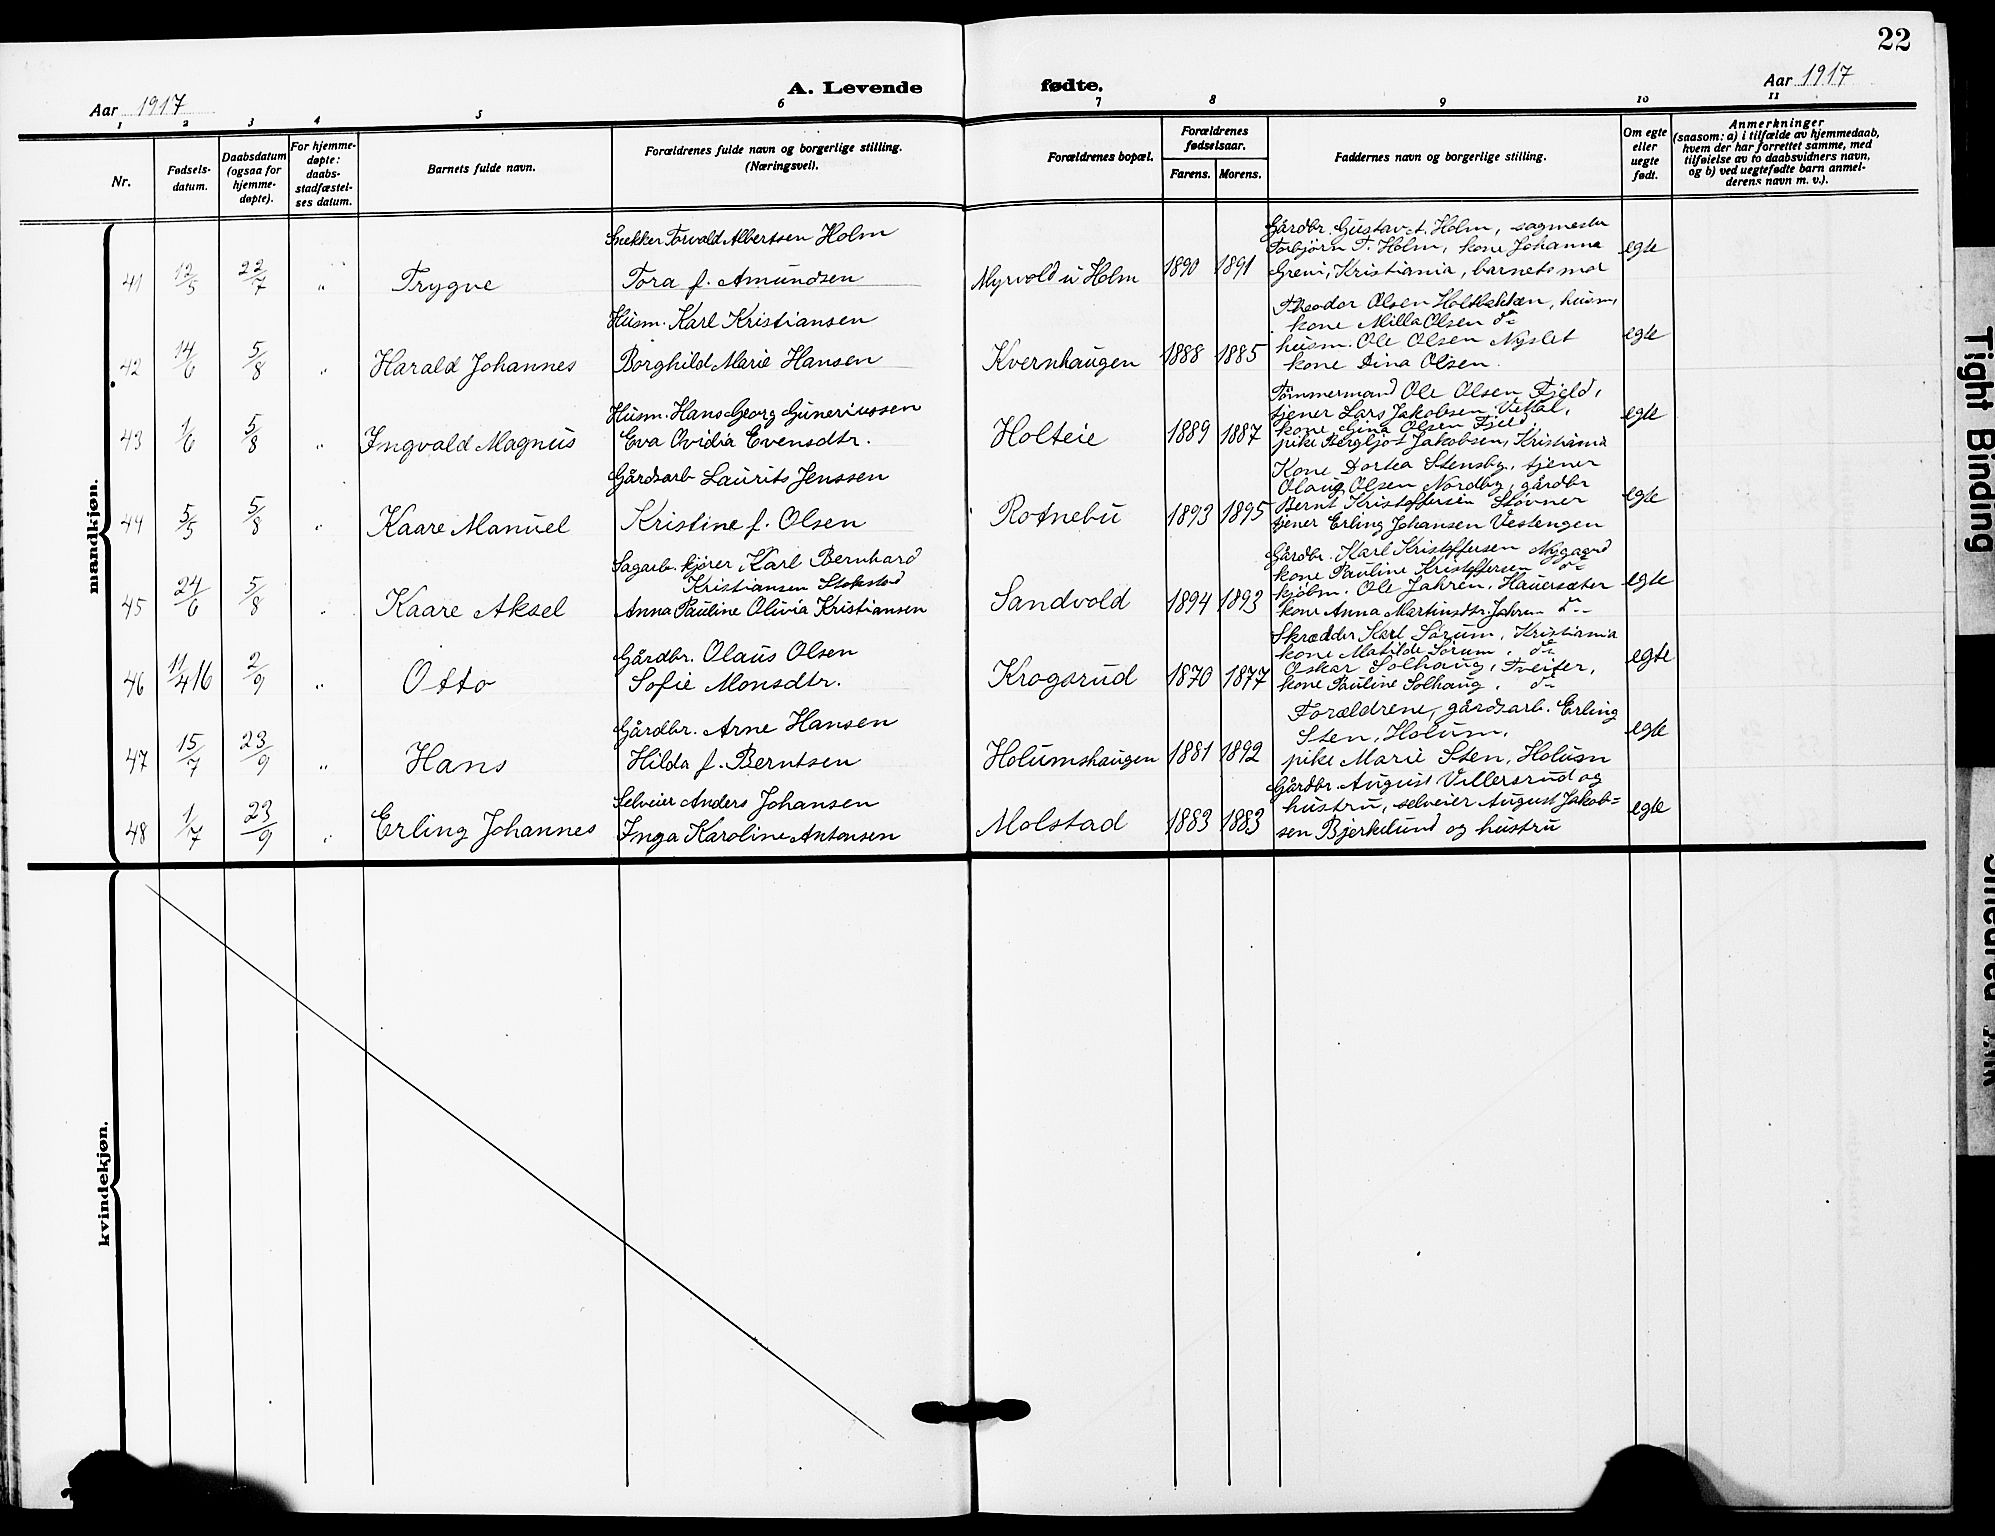 22
A. Levende fødte.
Aar 1917
Aar 1917
1 2 3 4 5 6 7 8 9 10 11
Nr.
Fødsels-
datum.
Daabsdatum
(ogsaa for
hjemme-
døpte).
For hjemme-
døpte:
daabs-
stadfæstel-
ses datum.
Barnets fulde navn.
Forældrenes fulde navn og borgerlige stilling.
(Næringsvei).
Forældrenes bopæl.
Forældrenes
fødselsaar.
Farens. Morens.
Faddernes navn og borgerlige stilling.
Om egte
eller
uegte
født.
Anmerkninger
(saasom: a) i tilfælde av hjemmedaab,
hvem der har forrettet samme, med
tilføielse av to daabsvidners navn,
og b) ved uegtefødte barn anmel-
derens navn m. v.).
mandkjøn.
41 12/5 22/7 " Trygve
Snekker Torvald Albertsen Holm
Tora f. Amundsen
Myrvold u Holm 1890 1891
Gårdbr. Gustav T. Holm, sagmester
Torbjörn T. Holm, kone Johanne
Greni, Kristiania, barnets mor
egte
42 14/6 5/8 " Harald Johannes
Husm. Karl Kristiansen
Borghild Marie Hansen
Kvernhaugen 1888 1885
Theodor Olsen Holtbakken, husm,
kone Milla Olsen do
husm. Ole Olsen Nyslet
kone Dina Olsen.
egte
43 1/6 5/8 " Ingvald Magnus
Husm. Hans Georg Guneriussen
Eva Ovidia Evensdtr.
Holteie 1889 1887
Tömmermand Ole Olsen Fjeld,
tjener Lars Jakobsen
kone Gina Olsen Fjeld,
pike Bergljot Jakobsen, Kristiania
egte
44 5/5 5/8 " Kaare Manuel
Gårdsarb Laurits Jenssen
Kristine f. Olsen
Rotnebu 1893 1895
Kone Dortea Stensby, tjener
Olaug Olsen Nordby, gårdbr
Bernt Kristoffersen Stovner
tjener Erling Johansen Vestengen
egte
45 24/6 5/8 " Kaare Aksel
Sagarb. kjörer Karl Bernhard
Kristiansen Stokstad
Anna Pauline Olivia Kristiansen
Sandvold 1894 1893
Gårdbr. Karl Kristoffersen Nygaard
kone Pauline Kristoffersen do
kjöbm. Ole Jahren, Hauersæter
kone Anna Martinsdtr. Jahren do
egte
46 11/4 16 2/9 " Otto
Gårdbr. Olaus Olsen
Sofie Monsdtr.
Krogsrud 1870 1877
Skrædder Karl Sörum, Kristiania
kone Matilde Sörum, do
Oskar Solhaug, Tveiter,
kone Pauline Solhaug, do
egte
47 15/7 23/9 " Hans
Gårdbr. Arne Hansen
Hilda f. Berntsen
Holumshaugen 1881 1892
Forældrene, gårdsarb. Erling
Sten, Holum,
pike Marie Sten, Holum
egte
48 1/7 23/9 " Erling Johannes
Selveier Anders Johansen
Inga Karoline Antonsen
Molstad 1883 1883
Gårdbr August Villersrud og
hustru, selveier August Jakob=
sen Bjerkelund og hustru
egte
kvindekjøn.
Tight Binding